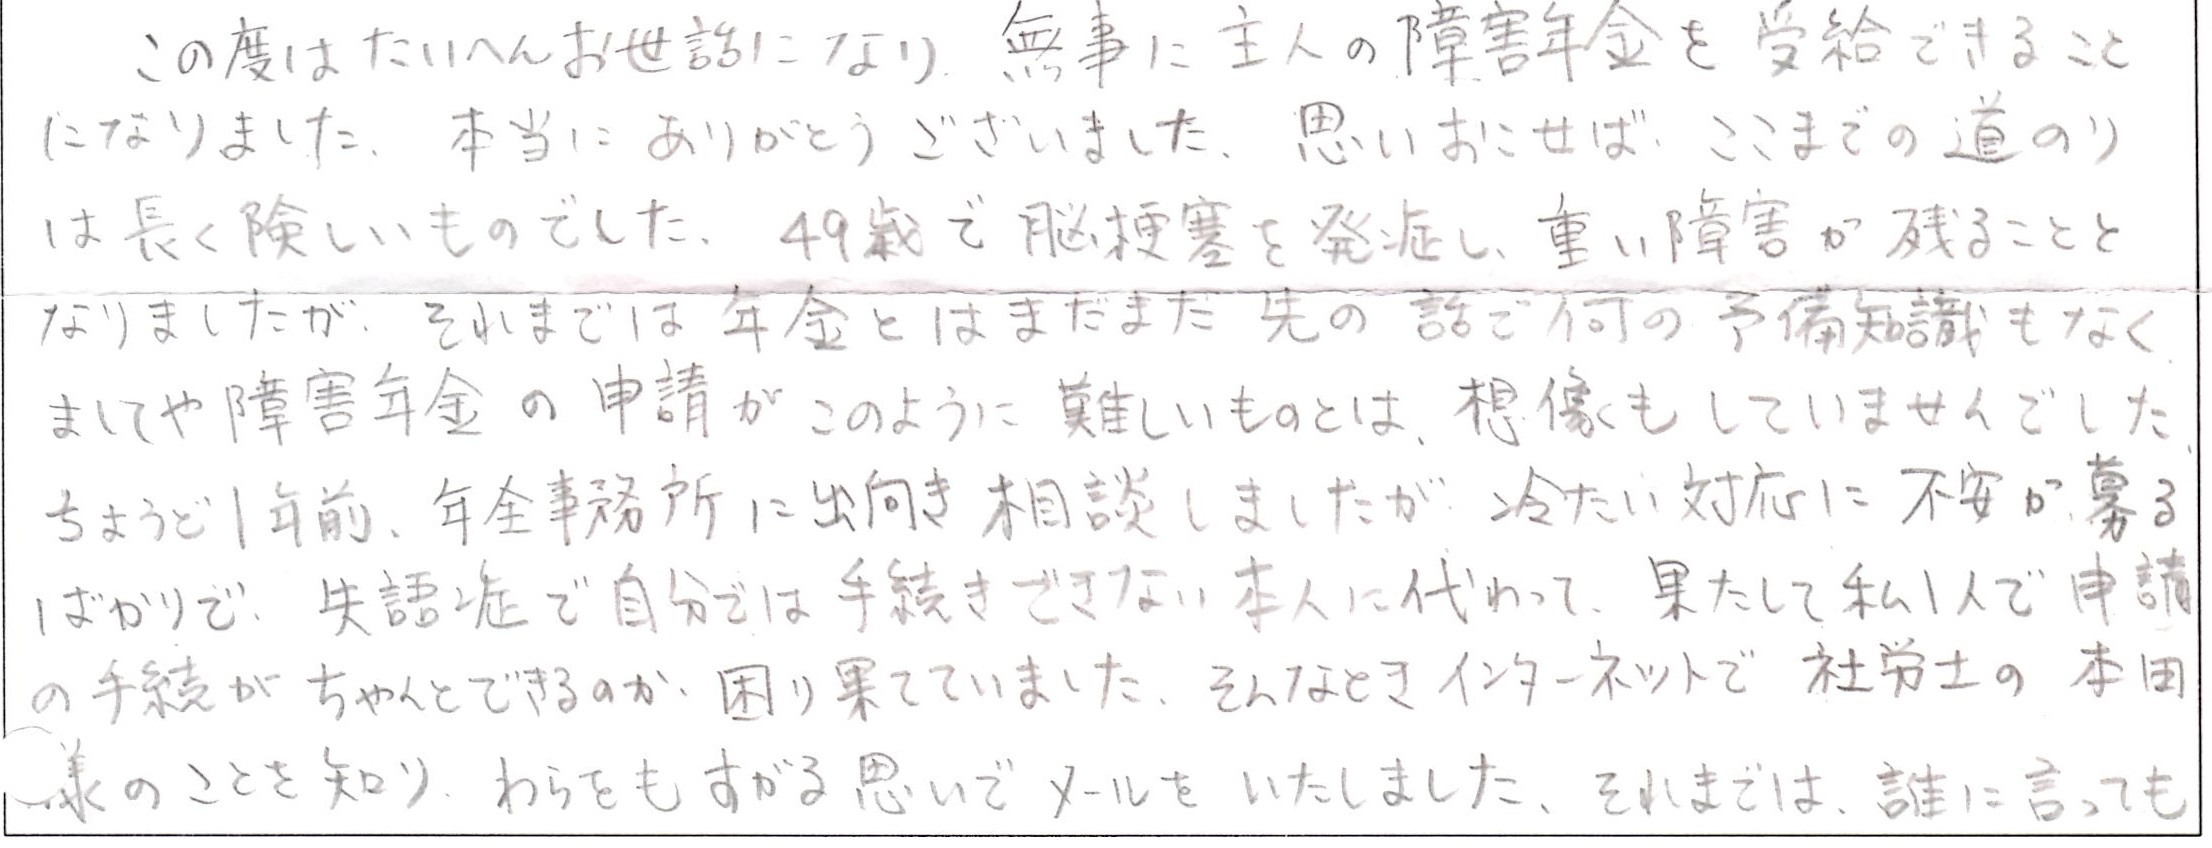 この度はたいへんお世話になり、無事に主人の障害年金を受給できること
になりました、本当にありがとうございました、思いおこせば、ここまでの道のり
は長く険しいものでした、49歳で脳梗塞を発症し、重い障害が残ることと
なりましたが、それまでは年金とはまだまだ先の話で何の予備知識もなく、
ましてや障害年金の申請がこのように難しいものとは、想像もしていませんでした、
ちょうど1年前、年金事務所に出向き相談しましたが、冷たい対応に不安が募る
ばかりで、失語症で自分では手続きできない本人に代わって、果たして私1人で申請
の手続がちゃんとできるのか、困り果てていました、そんなときインターネットで社労士の本田
様のことを知り、わらをもすがる思いでメールをいたしました、それまでは、誰に言っても